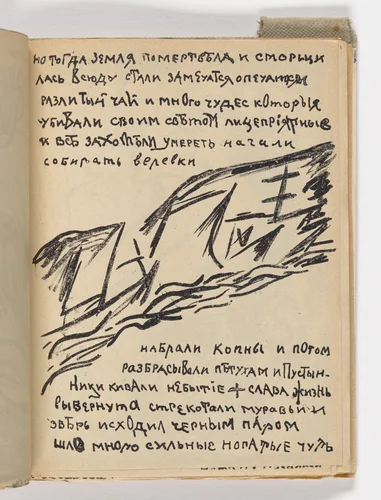 но тогда земля помертвѣла и сморщи
лась всюду стали замечатся опечатки
разлитый чай и много чудес которыя
убивали своим свѣтом лицепрiятныѣ
и всѣ захотѣли умереть начали
собирать веревки
набрали копны и потом
разбрасывали пѣтухам и пустын-
ники кивали небытiе + слава жизнь
вывернута стрекотали муравьи и
звѣрь исходил черным паром
шло много сильные